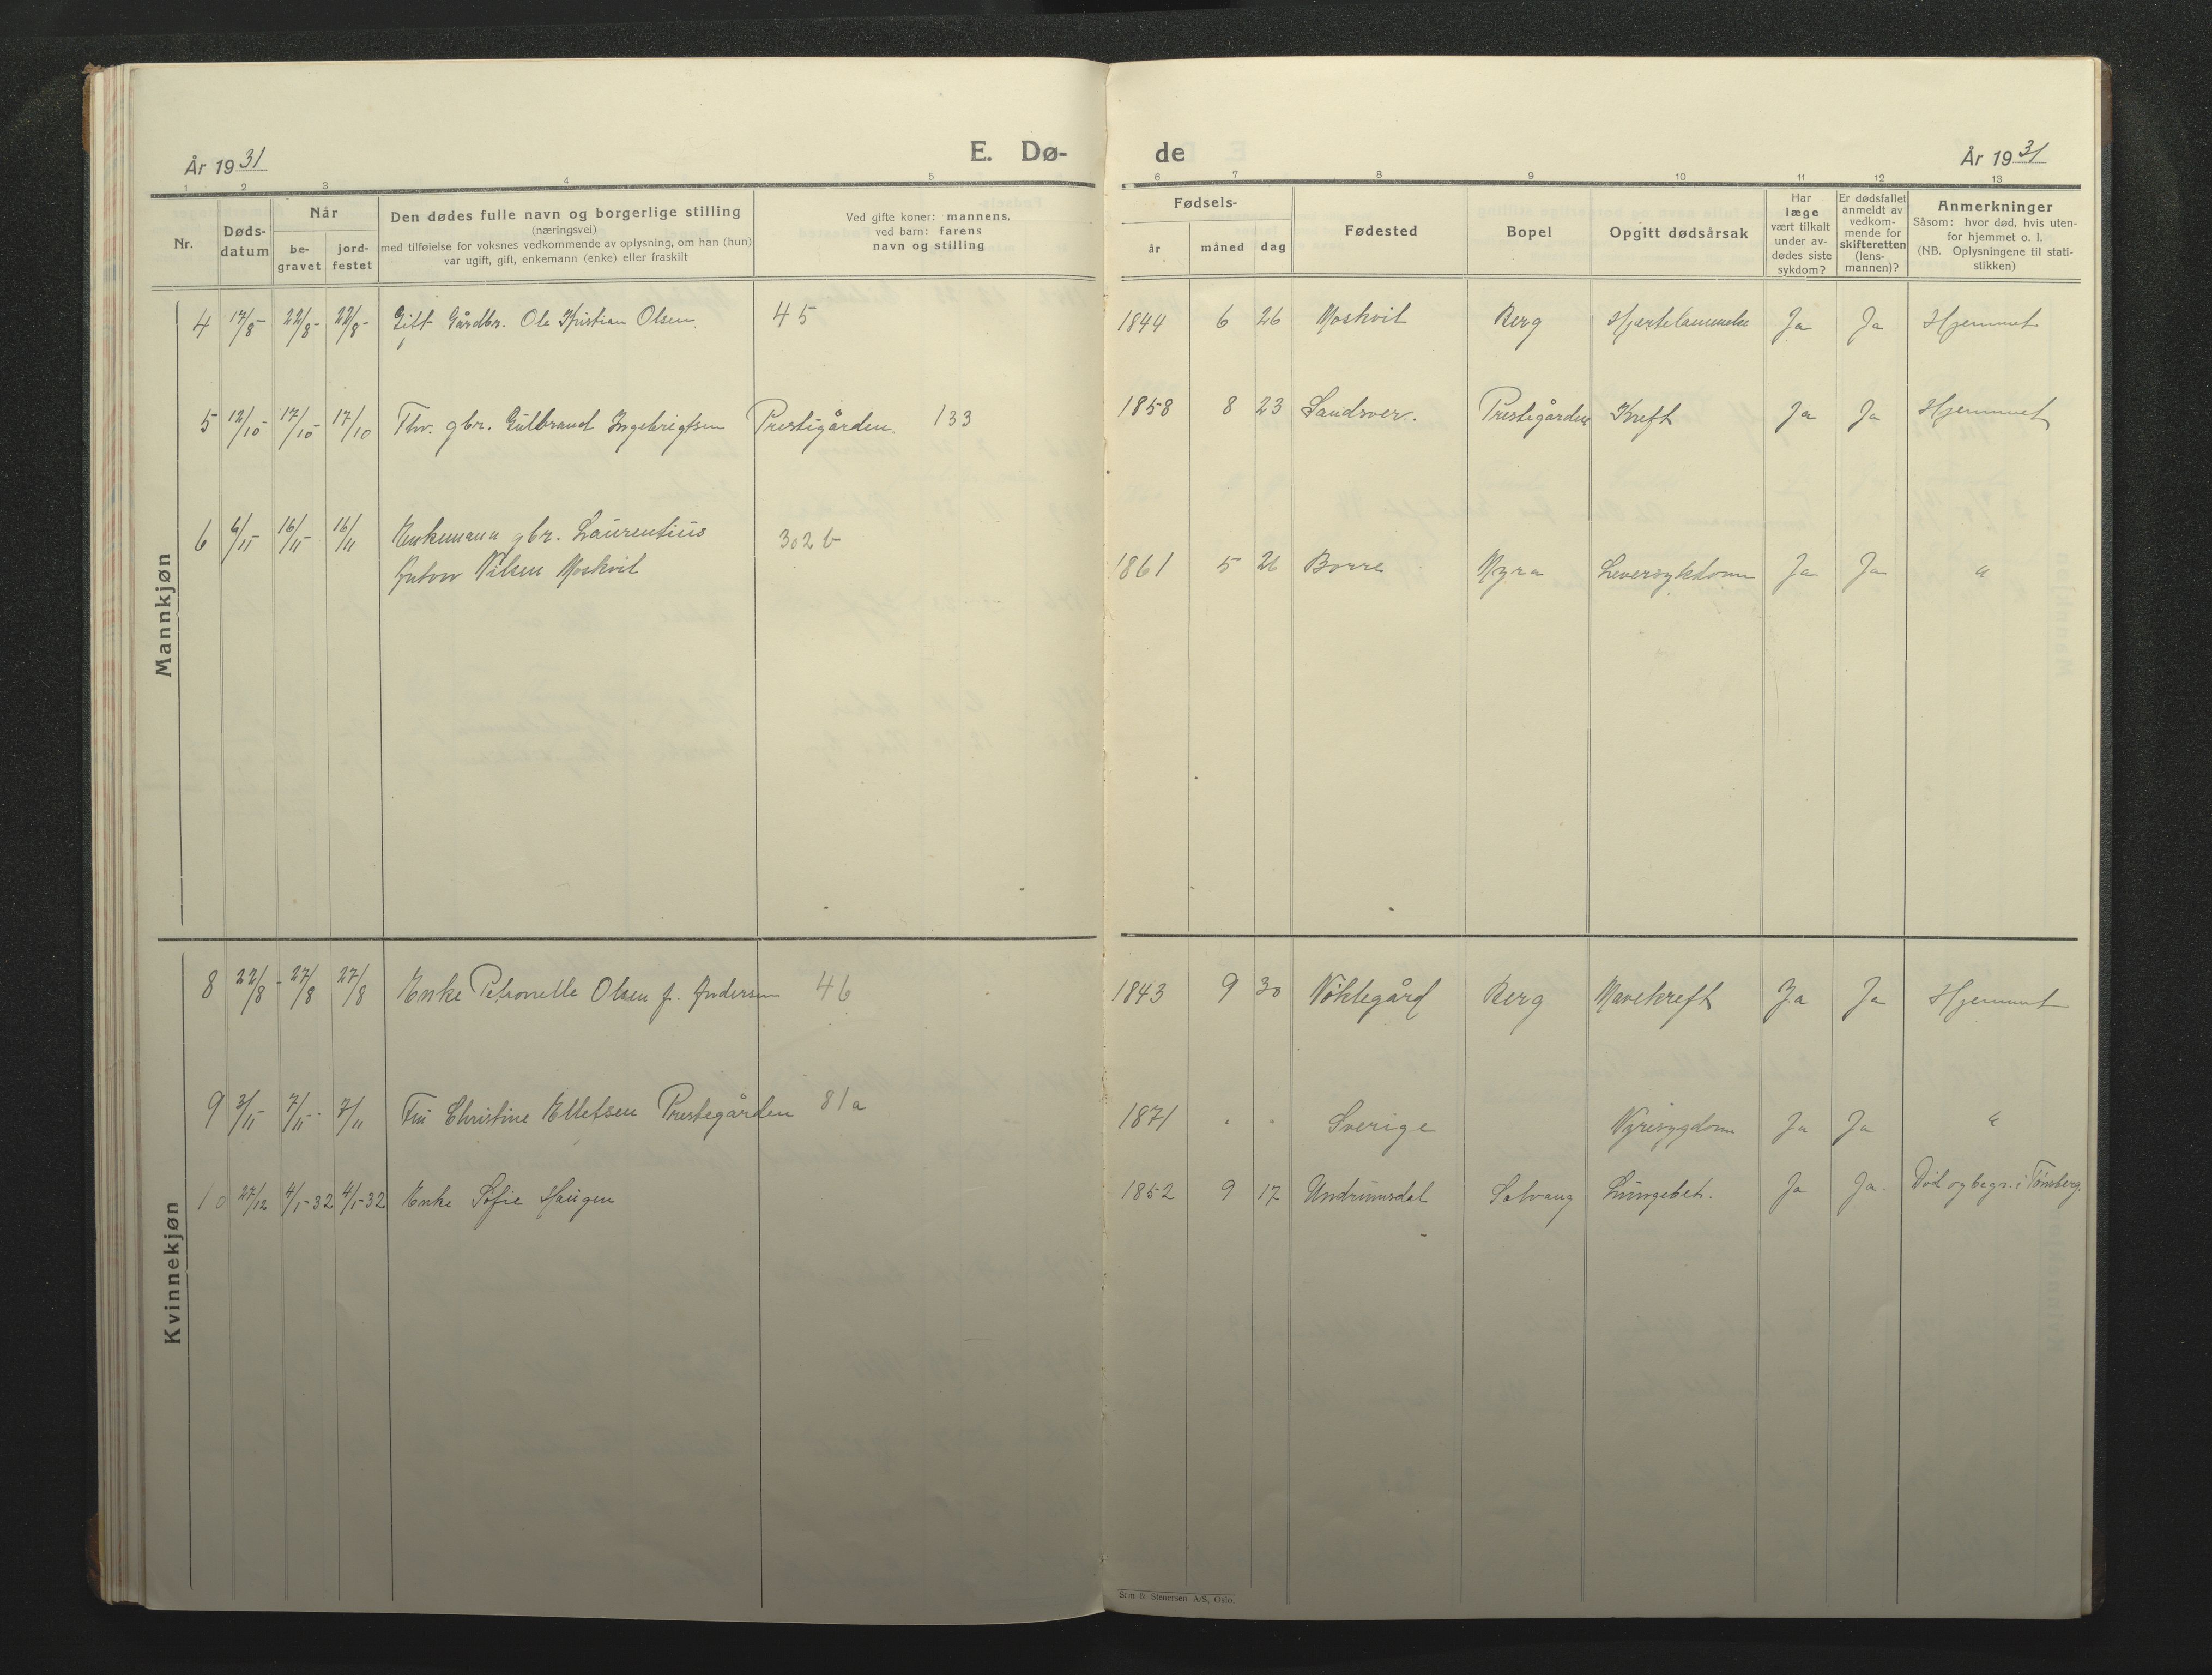 År 1931
E. Dø-
de
År 1931
1 2 3 4 5 6 7 8 9 10 11 12 13
Nr.
Døds-
datum
Når
be-
gravet
jord-
festet
Den dødes fulle navn og borgerlige stilling
(næringsvei)
med tilføielse for voksnes vedkommende av oplysning, om han (hun)
var ugift, gift, enkemann (enke) eller fraskilt
Ved gifte koner: mannens,
ved barn: farens
navn og stilling
Fødsels-
år måned dag
Fødested
Bopel
Opgitt dødsårsak
Har
læge
vært tilkalt
under av-
dødes siste
sykdom?
Er dødsfallet
anmeldt av
vedkom-
mende for
skifteretten
(lens-
mannen)?
Anmerkninger
Såsom: hvor død, hvis uten-
for hjemmet o. l.
(NB. Oplysningene til stati-
stikken)
Mannkjøn
4 17/8- 22/8- 22/8- Gift Gårdbr. Ole Kristian Olsen 45 1844 6 26 Moskvil Berg Hjertelammelse Ja Ja Hjemmet
5 12/10- 17/10- 17/10 Fhv. gbr. Gulbrand Ingebrigtsen Prestegården. 133 1858 8 23 Sandsver. Prestegården Kreft Ja Ja Hjemmet
6 6/11- 16/11- 16/11 Enkemann gbr. Laurentius 302 b
Anton Nilsen Moskvil 1861 5 26 Borre Myra Leversykdom Ja Ja "
Kvinnekjøn
8 22/8- 27/8 27/8 Enke Petronelle Olsen f. Andersen 46 1843 9 30 Nøklegård Berg Mavekreft Ja Ja Hjemmet
9 3/11- 7/11- 7/11 Fru Christine Ellefsen Prestegården 81a 1871 . . Sverige Nyresygdom Ja Ja "
10 27/12 4/1-32 4/1-32 Enke Sofie Haugen 1852 9 17 Undrumsdal Solvang Lungebet. Ja Ja. Død og begr. i Tønsberg.
Sem & Stenersen A/S, Oslo.